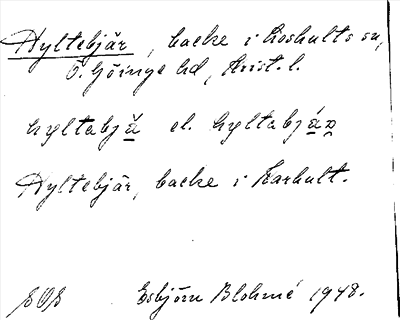 Hyltebjär, backe i Loshults sn,
Ö. Göinge hd, Krist. l.
hyltabjá̱ el. hyltabjá̱n
Hyltebjär, backe i Karhult.
Esbjörn Blohmé 1948.